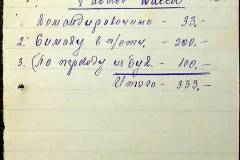 1. Командировочные - 33.-
2. Симаву в п/отч. - 200.-
3. (По переводу из бух. - 100.-
Итого - 333.-